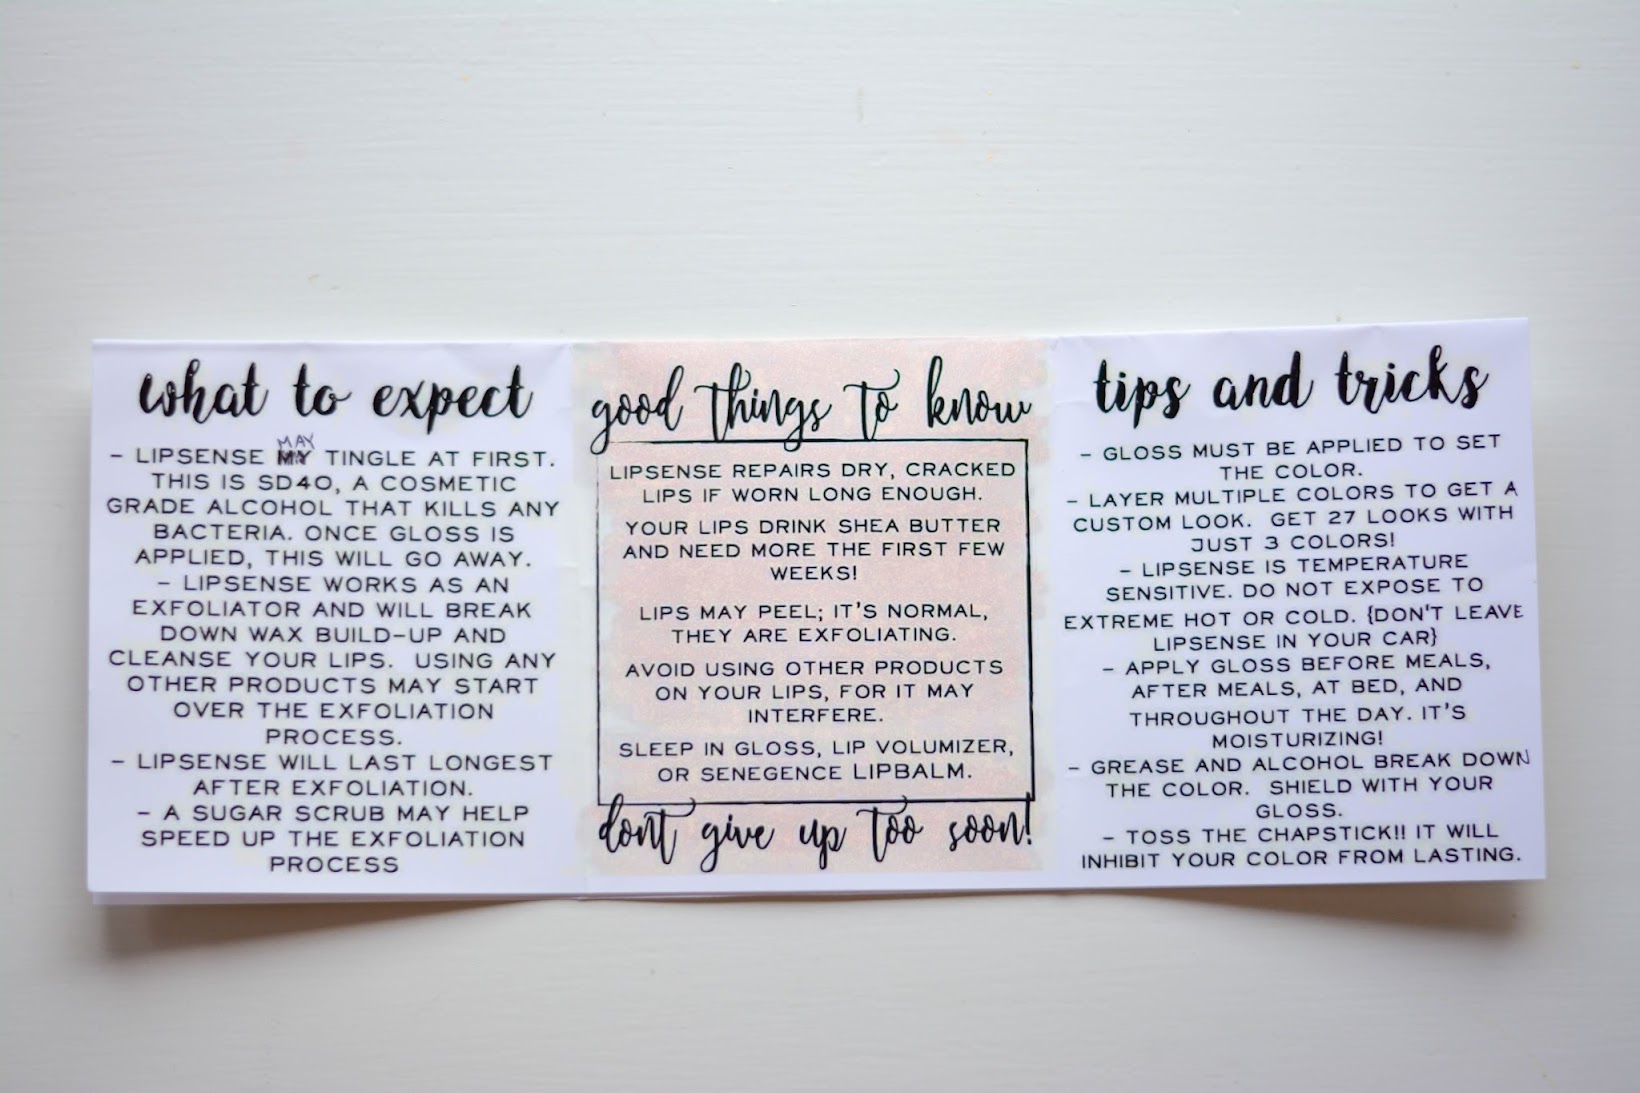 what to expect
- LIPSENSE MAY TINGLE AT FIRST.
THIS IS SD40, A COSMETIC
GRADE ALCOHOL THAT KILLS ANY
BACTERIA. ONCE GLOSS IS
APPLIED, THIS WILL GO AWAY.
- LIPSENSE WORKS AS AN
EXFOLIATOR AND WILL BREAK
DOWN WAX BUILD-UP AND
CLEANSE YOUR LIPS. USING ANY
OTHER PRODUCTS MAY START
OVER THE EXFOLIATION
PROCESS.
- LIPSENSE WILL LAST LONGEST
AFTER EXFOLIATION.
- A SUGAR SCRUB MAY HELP
SPEED UP THE EXFOLIATION
PROCESS
good things to know
LIPSENSE REPAIRS DRY, CRACKED
LIPS IF WORN LONG ENOUGH.
YOUR LIPS DRINK SHEA BUTTER
AND NEED MORE THE FIRST FEW
WEEKS!
LIPS MAY PEEL; IT'S NORMAL,
THEY ARE EXFOLIATING.
AVOID USING OTHER PRODUCTS
ON YOUR LIPS, FOR IT MAY
INTERFERE.
SLEEP IN GLOSS, LIP VOLUMIZER,
OR SENEGENCE LIPBALM.
dont give up too soon!
tips and tricks
- GLOSS MUST BE APPLIED TO SET
THE COLOR.
- LAYER MULTIPLE COLORS TO GET A
CUSTOM LOOK. GET 27 LOOKS WITH
JUST 3 COLORS!
- LIPSENSE IS TEMPERATURE
SENSITIVE. DO NOT EXPOSE TO
EXTREME HOT OR COLD. {DON'T LEAVE
LIPSENSE IN YOUR CAR}
- APPLY GLOSS BEFORE MEALS,
AFTER MEALS, AT BED, AND
THROUGHOUT THE DAY. IT'S
MOISTURIZING!
- GREASE AND ALCOHOL BREAK DOWN
THE COLOR. SHIELD WITH YOUR
GLOSS.
- TOSS THE CHAPSTICK!! IT WILL
INHIBIT YOUR COLOR FROM LASTING.